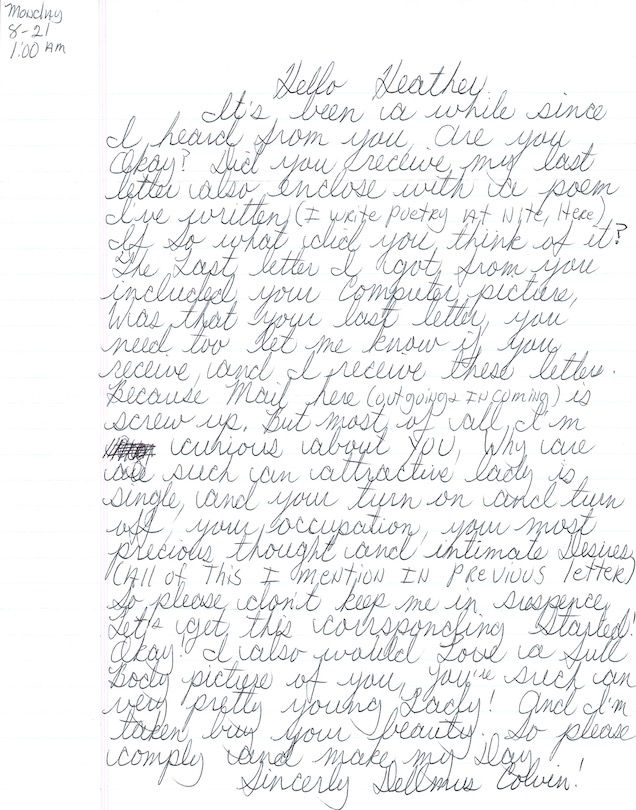 Monday
8-21
1:00 AM
Hello Heather
It's been a while since
I heard from you are you
Okay? Did you receive my last
letter also enclose with a poem
I've written (I write Poetry At Nite, Here)
If so what did you think of it?
The Last letter I got from you
included your Computer picture,
Was that your last letter, you
need too let me know if you
receive and I receive these letters.
Because Mail here (outgoing & INcoming) is
screw up. But most of all I'm
curious about You, Why are
such an attractive lady is
single, and your turn on and turn
off, your occupation, your most
precious thought and intimate Desires,
(All of This I mention IN Previous letter)
So please don't keep me in suspence,
Let's get this corrsponding Started!
Okay! I also would Love a full
Body picture of you, you're such an
very pretty young Lady! And I'm
taken buy your beauty. So please
comply and make my Day
Sincerly Dellmus Colvin!